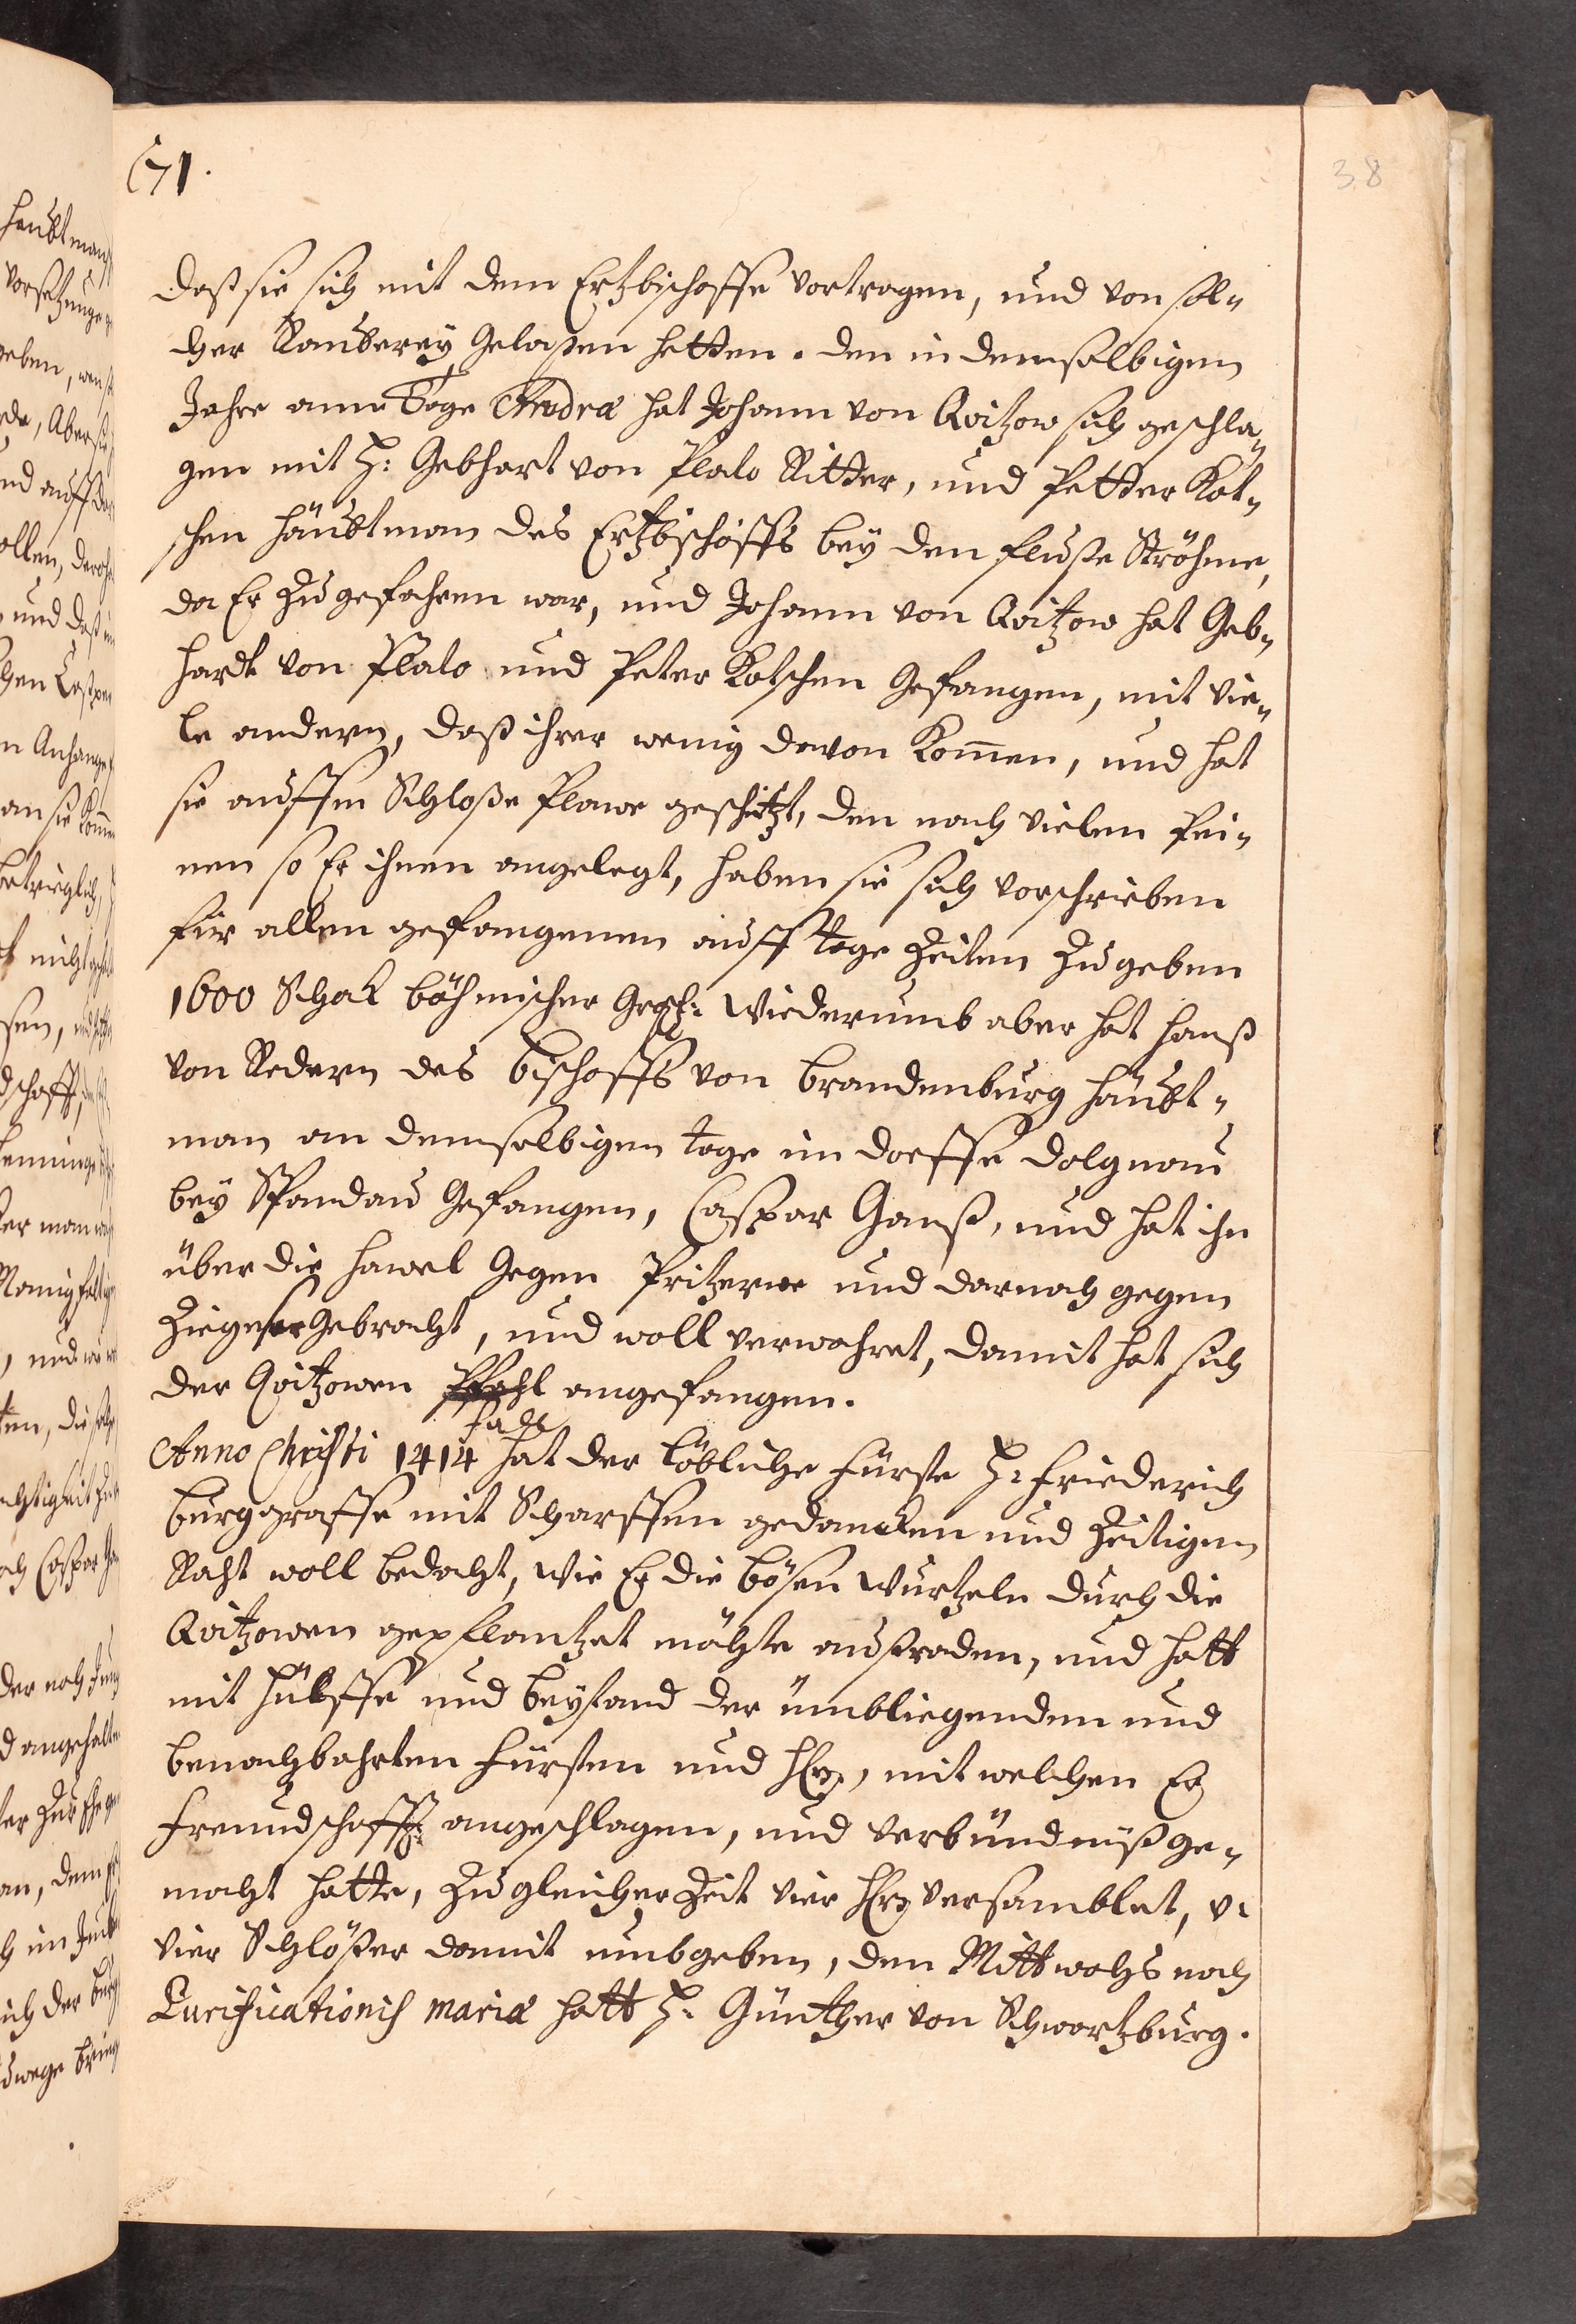 71.
38
daß sie sich mit dem Ertzbischoffe vortragen, und von sol-
cher Rauberey gelaßen hetten. den in demselbigen
Jahre amme Tage Andreæ hat Johann von Qvitzow sich geschla-
gen mit H: Gebhart von Plalo Ritter, und Petter Kot-
schen häubtman des Ertzbischoffs bey den fluße Ströhme,
da Er zu gefahren war, und Johann von Qvitzow hat Geb-
hardt von Plalo und Peter Kotschen gefangen, mit vie-
le andern, daß ihrer wenig davon komen, und hat
sie auffm Schloße Plawe geschetzt, den nach vielen Pei-
nen so Er ihnen angelegt, haben sie sich vorschrieben
für allen gefangenen auff tage Zeiten zu geben
1600 Schok böhmischer Grosch: Wiederumb aber hat hanß
von Redern des bischoffs von Brandenburg häubt-
man an demselbigen tage im dorffe dolgnau
bey Spandau gefangen, Caspar Ganß, und hat ihn
über die hawel gegen Pritzerwe und darnach gegen
Ziegeser gebracht, und woll verwahret, damit hat sich
der Qvitzowen Pfahl angefangen.
fade
Anno Christi 1414 hat der löbliche fürste H: friederich
burggraffe mit scharffen gedancken und Zeitigen
Raht woll bedacht, wie Er die bösen wurtzeln durch die
Qvitzowen gepflantzet möchte außraden, und hatt
mit hülffe und beystand der ümbliegenden und
benachbahrten fürsten und Hrn, mit welchen Er
freundschafft angeschlagen, und verbündnüß ge-
macht hatte, zu gleicher Zeit vier Hrn versamblet, v:
vier Schlößer damit umbgeben, den Mittwochs nach
Purificationis mariæ hatt H. Günther von Schwartzburg.